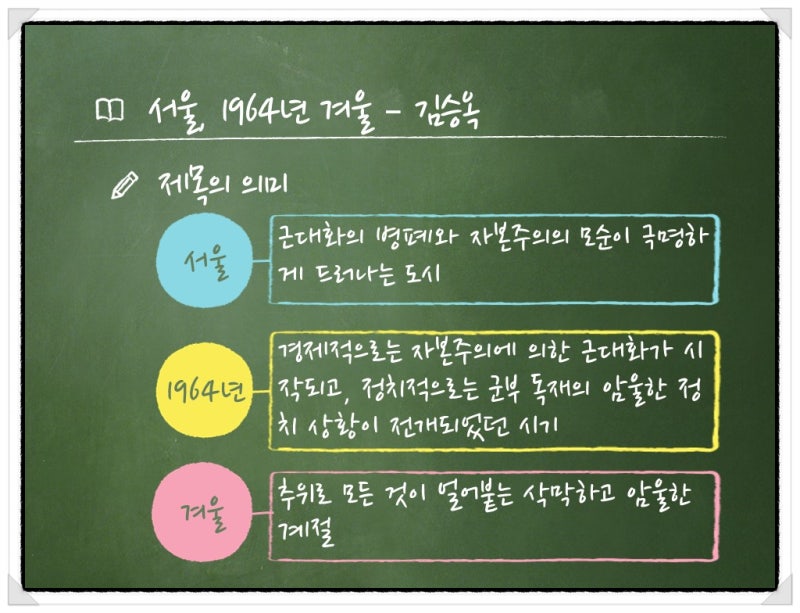 서울, 1964년 겨울 - 김승옥
제목의 의미
서울
근대화의 병폐와 자본주의의 모순이 극명하
게 드러나는 도시
1964년
경제적으로는 자본주의에 의한 근대화가 시
작되고, 정치적으로는 군부 독재의 암울한 정
치 상황이 전개되었던 시기
겨울
추위로 모든 것이 얼어붙는 삭막하고 암울한
계절